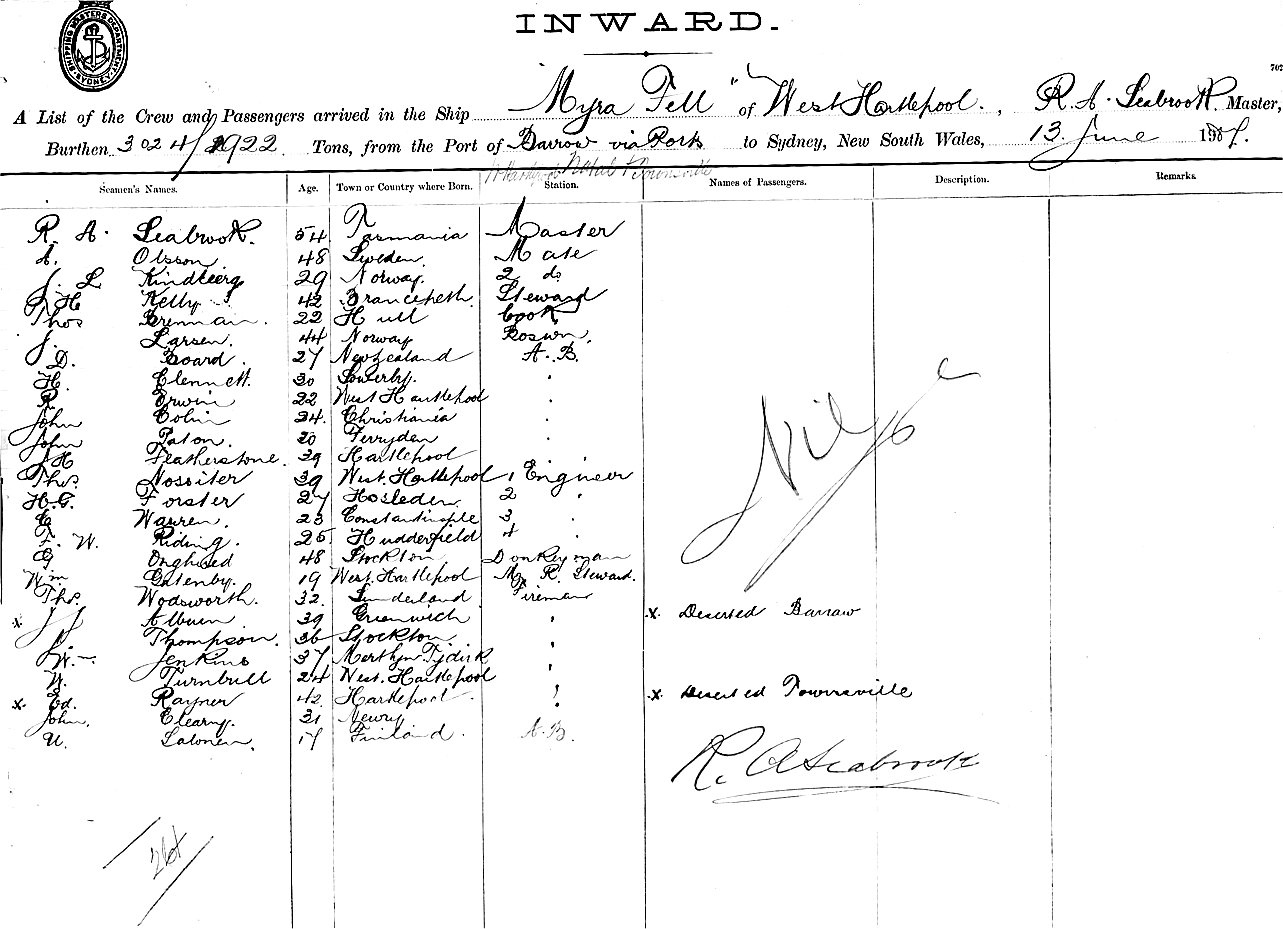 SHIPPING MASTERS DEPARTMENT · SYDNEY ·
INWARD.
702
A List of the Crew and Passengers arrived in the Ship "Myra Fell" of West Hartlepool., R. A. Seabrook Master,
Burthen 3024/1922 Tons, from the Port of Barrow via Ports to Sydney, New South Wales, 13 June 190
Natal + Townsville
Seamen's Names. Age. Town or Country where Born. Station. Names of Passengers. Description. Remarks.
R. A. Seabrook. 54 Tasmania Master
A. Olsson 48 Sweden. Mate
J. L Kindberg 29 Norway. 2 do
J. H Kelly 42 Brancepeth Steward
Thos Brennan. 22 Hull Cook
J. Larsen. 44 Norway Boswn.
D. Board. 27 New Zealand A. B.
H. Clennett. 30 Sowerby.
R. Erwin 22 West Hartlepool
John Colin 34. Christiania
John Paton. 20 Ferryden
J H Featherstone. 39 Hartlepool
Thos. Nossiter 39 West. Hartlepool 1 Engineer
H. G. Forster 27 2
C Warren. 23 Constantinople 3
F. W. Riding. 25 Hudderfield 4
G 48 Stockton Donkeyman
Wm Gatenby. 19 West. Hartlepool M. R. Steward.
Thos. Wodsworth. 32. Sunderland Fireman
x J Alburn 39 Greenwich x Deserted Barrow
J Thompson. 36 Stockton
W. Jenkins 37 Merthyr Tydirk
W. Turnbull 24 West. Hartlepool
x Ed. Rayner 42. Hartlepool x Deserted Townsville
John. Clearny. 31 Newry
U. Salonen. 17 Finland. A. B.
Nil
R. A Seabrook
26